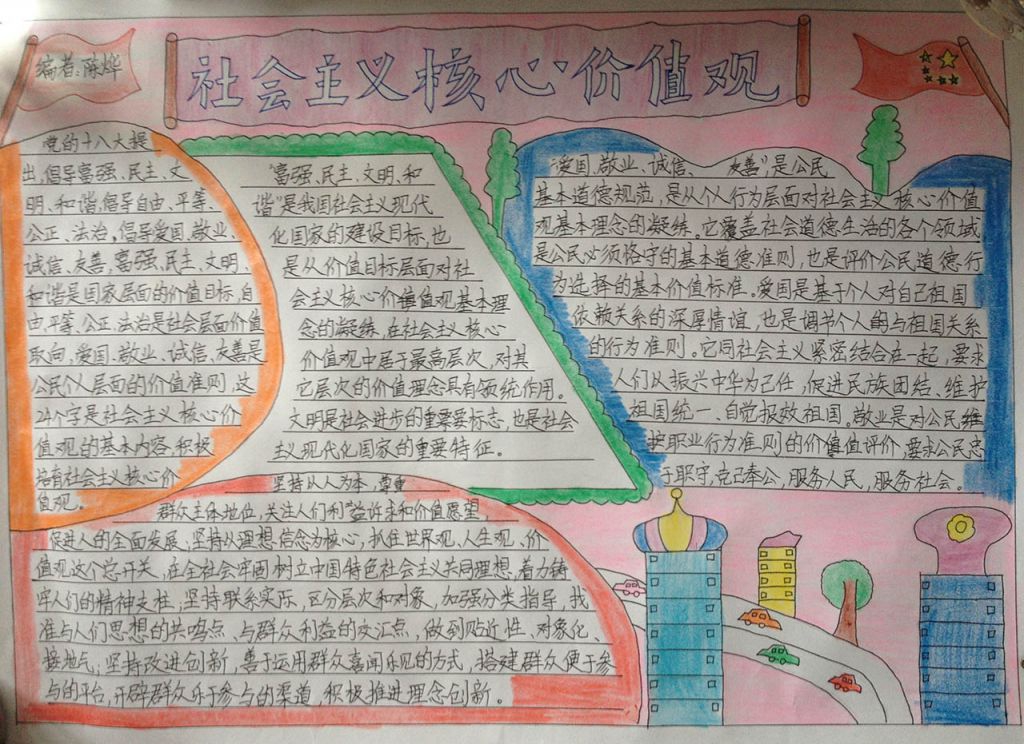 编者:陈烨
社会主义核心价值观
党的十八大提
出,倡导富强、民主、文
明、和谐倡导自由、平等、
公正、法治,倡导爱国、敬业、
诚信、友善,富强、民主、文明、
和谐是国家层面的价值目标,自
由、平等、公正、法治是社会层面价值
取向,爱国、敬业、诚信、友善是
公民个人层面的价值准则,这
24个字是社会主义核心价
值观的基本内容。积极
培育社会主义核心价
值观。
“富强、民主、文明、和
谐”是我国社会主义现代
化国家的建设目标,也
是从价值目标层面对社
会主义核心价值观基本理
念的凝练,在社会主义核心
价值观中居于最高层次,对其
它层次的价值理念具有领统作用。
文明是社会进步的重要标志,也是社会
主义现代化国家的重要特征。
“爱国、敬业、诚信、友善”,是公民
基本道德规范,是从个人行为层面对社会主义核心价值
观基本理念的凝练。它覆盖社会道德生活的各个领域,
是公民必须恪守的基本道德准则,也是评价公民道德行
为选择的基本价值标准。爱国是基于个人对自己祖国
依赖关系的深厚情谊,也是调节个人的与祖国关系
的行为准则。它同社会主义紧密结合在一起,要求
人们从振兴中华为己任,促进民族团结、维护
祖国统一、自觉报效祖国。敬业是对公民
护职业行为准则的价值评价,要求公民忠
于职守,克己奉公,服务人民,服务社会。
坚持从人为本,尊重
群众主体地位,关注人们利益许求和价值愿望,
促进人的全面发展,坚持从理想信念为核心,抓住世界观、人生观、价
值观这个总开关,在全社会牢固树立中国特色社会主义共同理想,着力铸
牢人们的精神支柱,坚持联系实际,区分层次和对象,加强分类指导,找
准与人们思想的共鸣点、与群众利益的交汇点,做到贴近性、对象化、
接地气,坚持改进创新,善于运用群众喜闻乐见的方式,搭建群众便于参
与的平台,开辟群众乐于参与的渠道,积极推进理念创新。